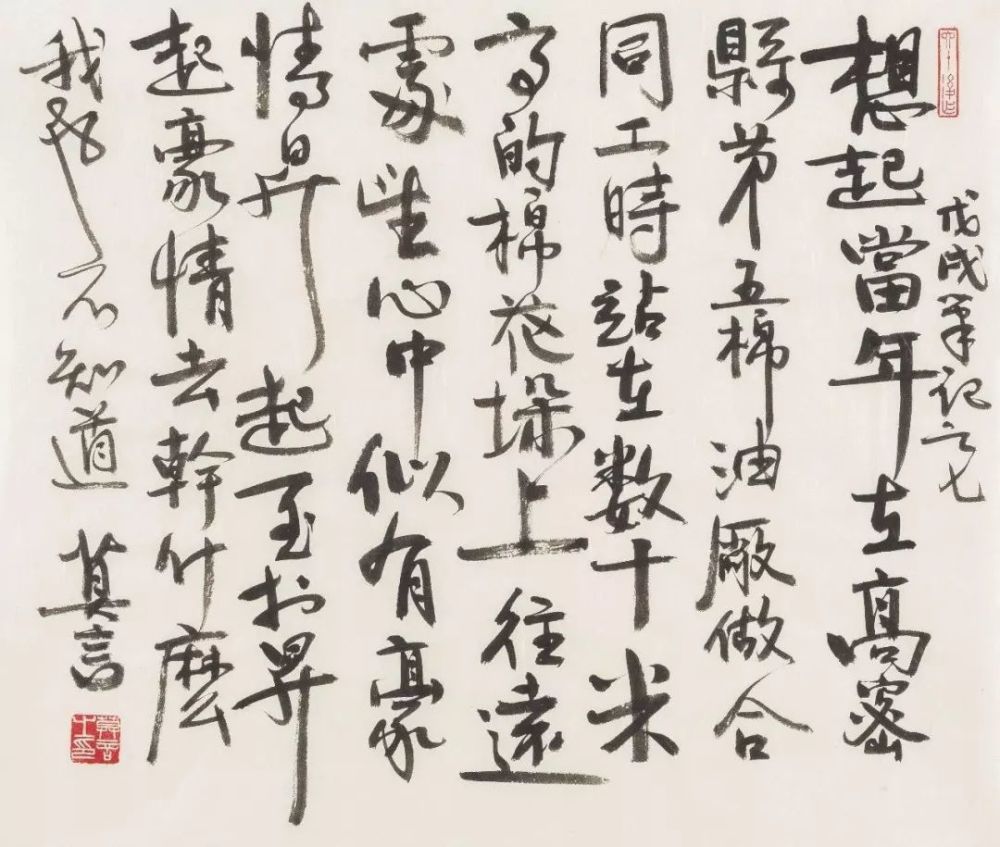 戊戌筆記之七
想起當年在高密
縣第五棉油廠做合
同工時站在数十米
高的棉花垛上往遠
處望心中似有豪
情昇起至於昇
起豪情去幹什麼
我不知道 莫言